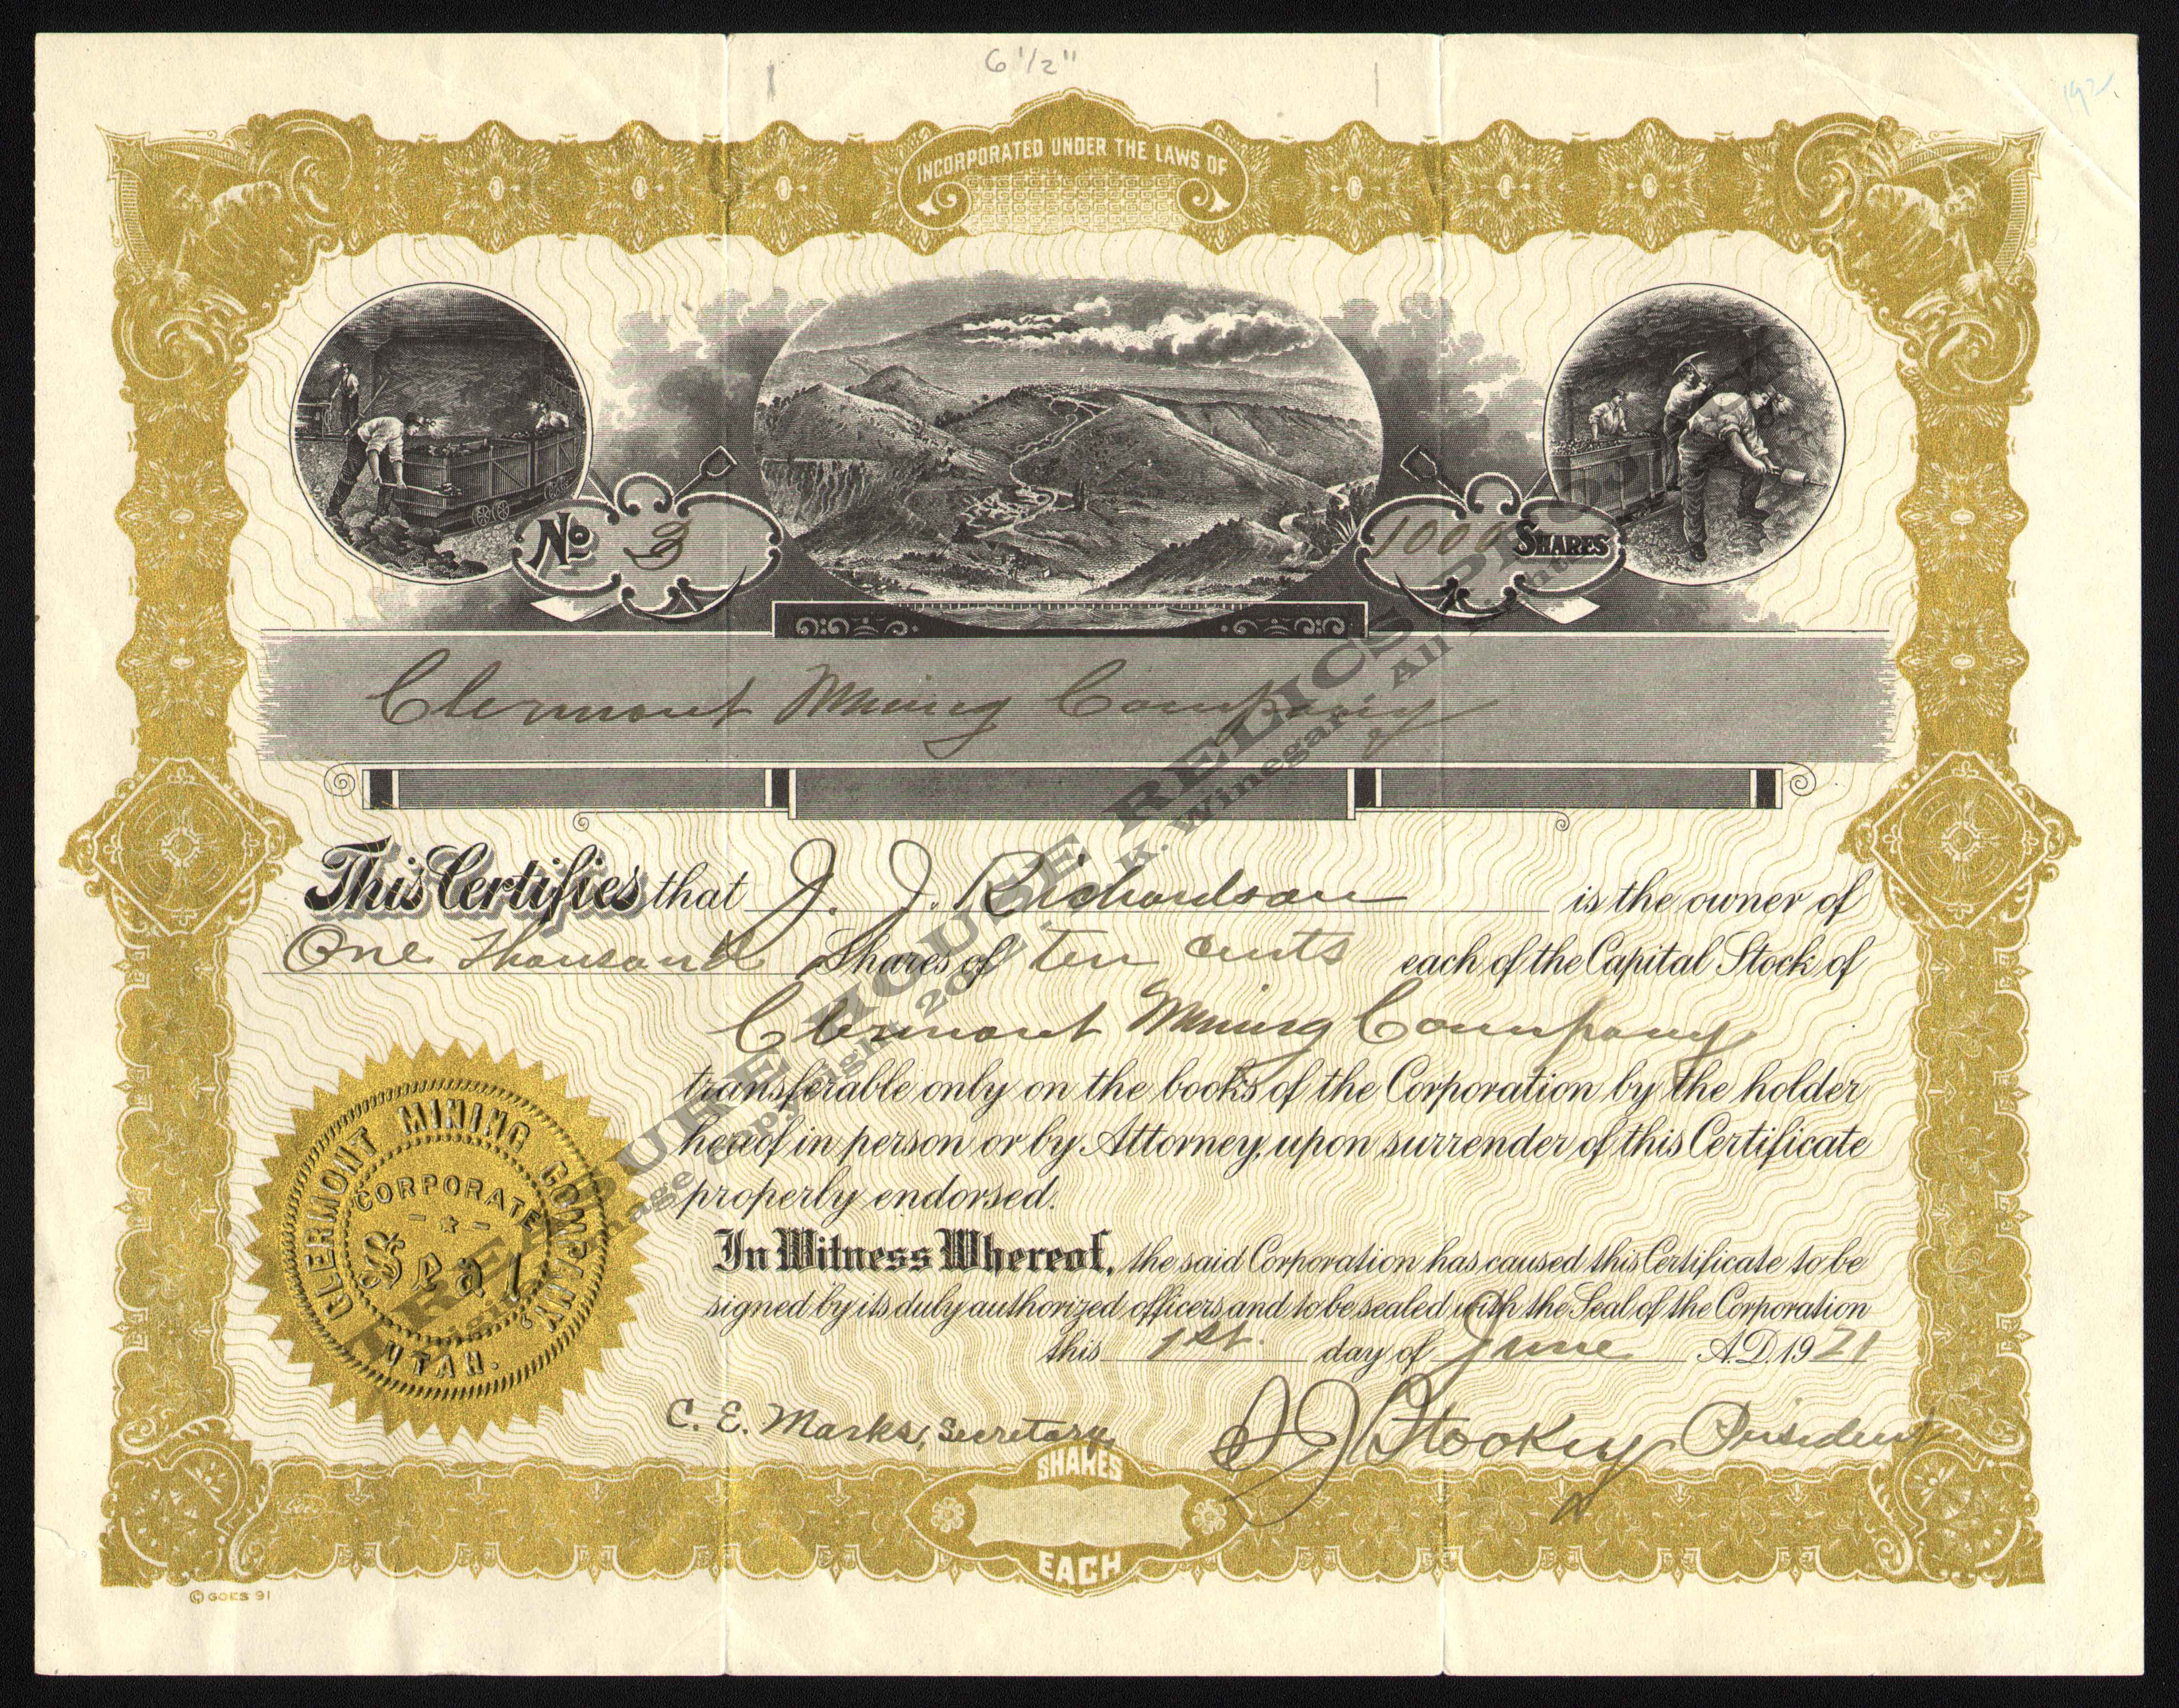 6 1/2"
192
INCORPORATED UNDER THE LAWS OF
No 3
1000 SHARES
Clermont Mining Company
This Certifies that J. J. Richardson is the owner of
One Thousand Shares of ten cents each of the Capital Stock of
Clermont Mining Company
transferable only on the books of the Corporation by the holder
hereof in person or by Attorney, upon surrender of this Certificate
properly endorsed.
In Witness Whereof, the said Corporation has caused this Certificate to be
signed by its duly authorized officers and to be sealed with the Seal of the Corporation
this 1st. day of June A.D. 1921
C. E. Marks, Secretary
Stookey President
CLERMONT MINING COMPANY.
CORPORATE
Seal
UTAH.
SHARES
EACH
© GOES 91
TREASURE HOUSE RELICS PROJECT
Image Copyright K. Winegar. All